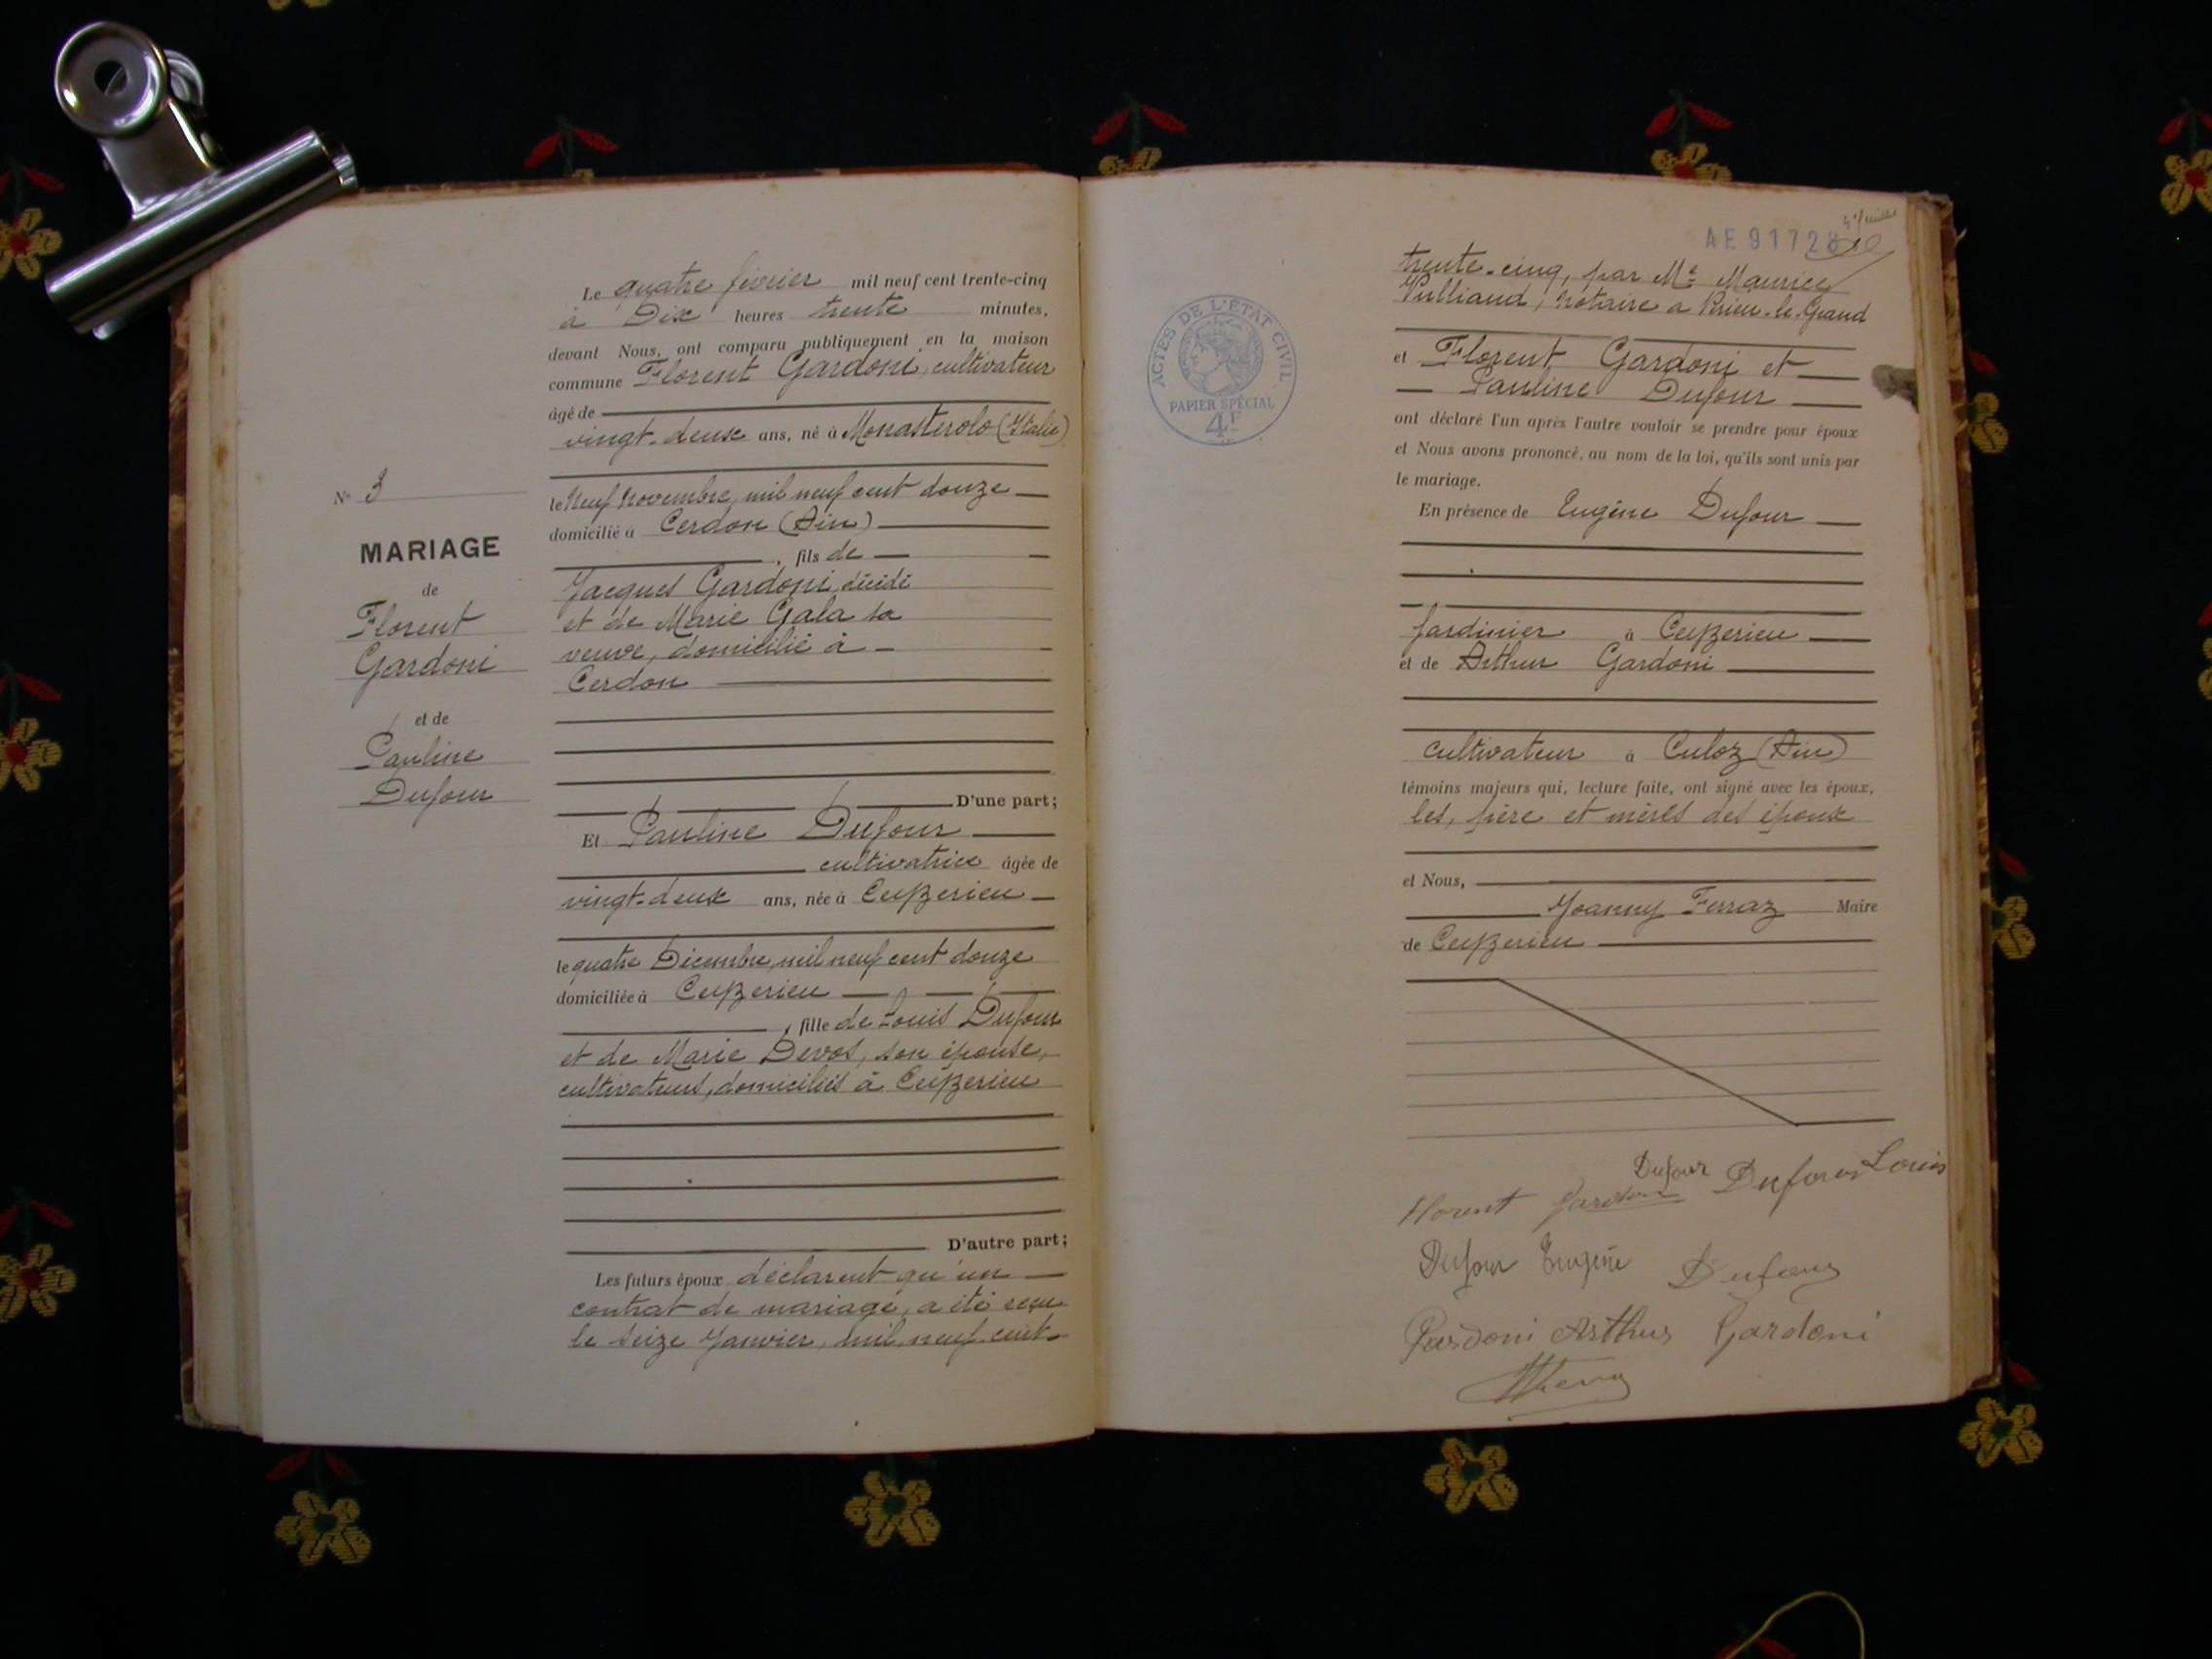 Le quatre février mil neuf cent trente-cinq
à Dix heures trente minutes,
devant Nous, ont comparu publiquement en la maison
commune Florent Gardoni, cultivateur
âgé de
vingt-deux ans, né à Monasterolo (Italie)
le Neuf Novembre, mil neuf cent douze
domicilié à Cerdon (Ain)
, fils de
Jacques Gardoni, décédé
et de Marie Gala sa
veuve, domicilié à
Cerdon
D'une part;
Et Pauline Dufour
cultivatrice âgée de
vingt-deux ans, née à Ceyzerieu
le quatre Décembre, mil neuf cent douze
domiciliée à Ceyzerieu
, fille de Louis Dufour
et de Marie Devos, son épouse,
cultivateurs, domiciliés à Ceyzerieu
D'autre part;
Les futurs époux déclarent qu'un
contrat de mariage, a été reçu
le seize Janvier, mil neuf cent
N° 3
MARIAGE
de
Florent
Gardoni
et de
Pauline
Dufour
AE 9172
ACTES DE L'ÉTAT CIVIL
PAPIER SPÉCIAL
4F
trente-cinq, par Me Maurice
Vulliaud, notaire a Virieu-le-Grand
et Florent Gardoni et
Pauline Dufour
ont déclaré l'un après l'autre vouloir se prendre pour époux
et Nous avons prononcé, au nom de la loi, qu'ils sont unis par
le mariage.
En présence de Eugène Dufour
Jardinier à Ceyzerieu
et de Arthur Gardoni
cultivateur à Culoz (Ain)
témoins majeurs qui, lecture faite, ont signé avec les époux,
les, père et mères des époux
et Nous,
Joanny Ferraz Maire
de Ceyzerieu
Dufour Dufour Louis
Florent Gardoni
Dufour Eugène Dufour
Gardoni Arthur Gardoni